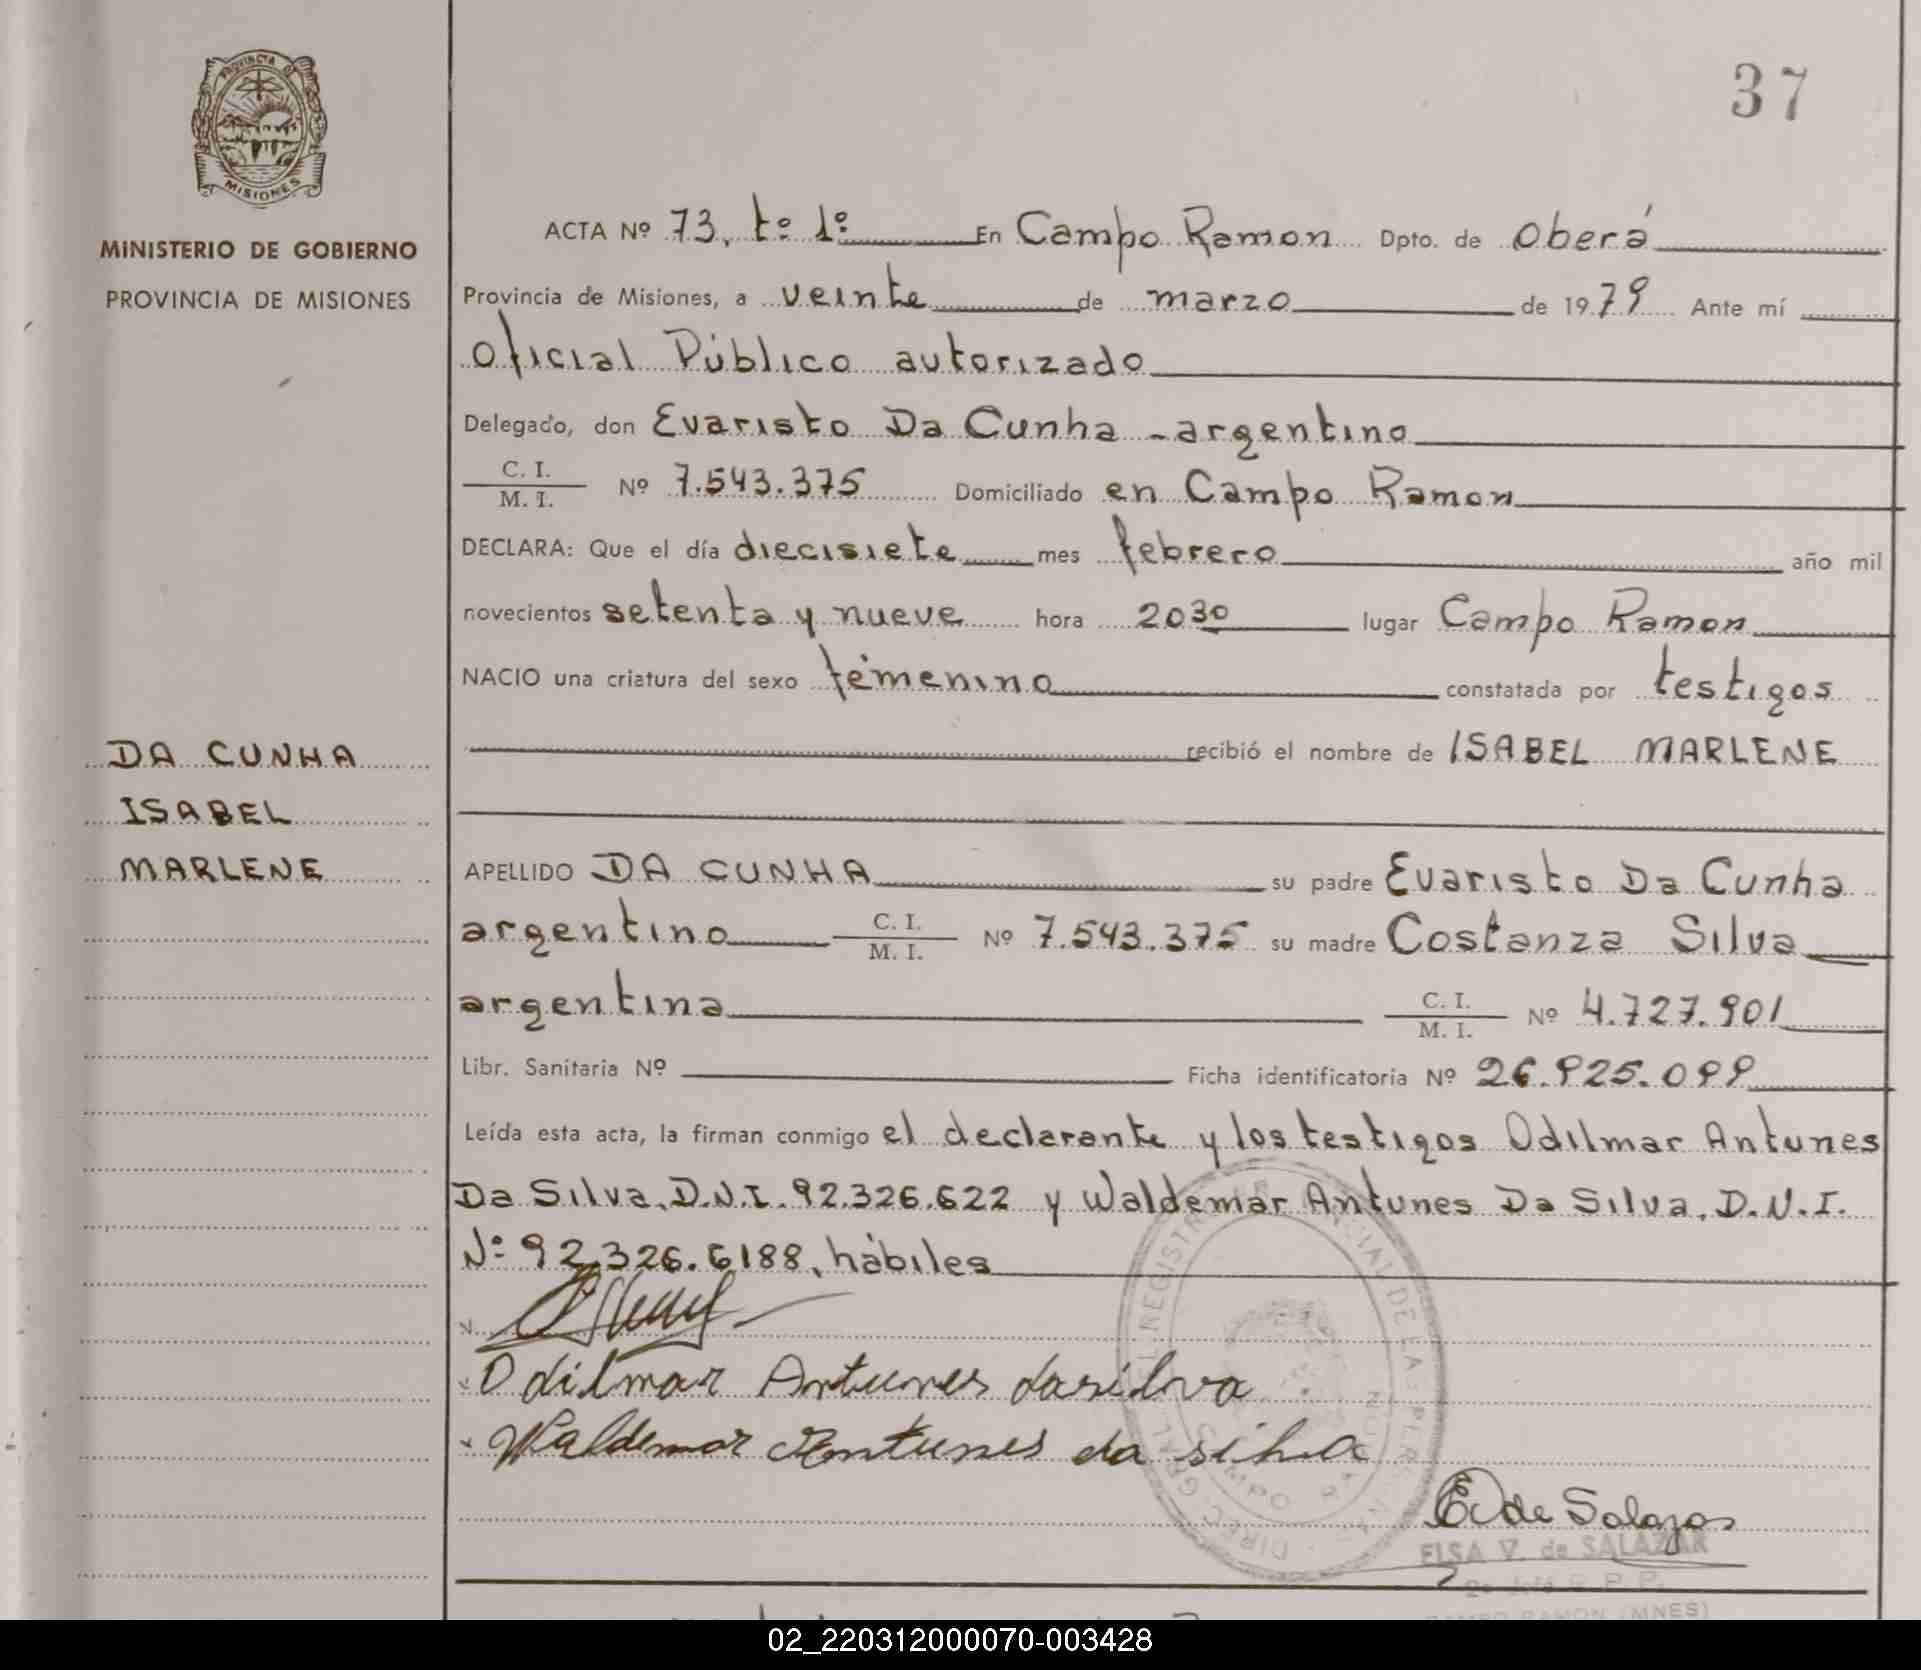 37
PROVINCIA DE
MISIONES
MINISTERIO DE GOBIERNO
PROVINCIA DE MISIONES
ACTA Nº 73, tº 1º En Campo Ramon Dpto. de Oberá
Provincia de Misiones, a veinte de marzo de 1979 Ante mí
Oficial Público autorizado
Delegado, don Evaristo Da Cunha - argentino
C. I.
M. I. Nº 7.543.375 Domiciliado en Campo Ramon
DECLARA: Que el día diecisiete mes febrero año mil
novecientos setenta y nueve hora 2030 lugar Campo Ramon
NACIO una criatura del sexo femenino constatada por testigos
recibió el nombre de ISABEL MARLENE
DA CUNHA
ISABEL
MARLENE
APELLIDO DA CUNHA su padre Evaristo Da Cunha
argentino C. I.
M. I. Nº 7.543.375 su madre Costanza Silva
argentina C. I.
M. I. Nº 4.727.901
Libr. Sanitaria Nº Ficha identificatoria Nº 26.925.099
Leída esta acta, la firman conmigo el declarante y los testigos Odilmar Antunes
Da Silva, D.N.I. 92.326.622 y Waldemar Antunes Da Silva, D.N.I.
Nº 92.326.6188, hábiles
Odilmar Antunes dasilva
Waldemar Antunes da silva
E de Salazar
ELSA V. de SALAZAR
CAMPO RAMON (MNES)
02_220312000070-003428